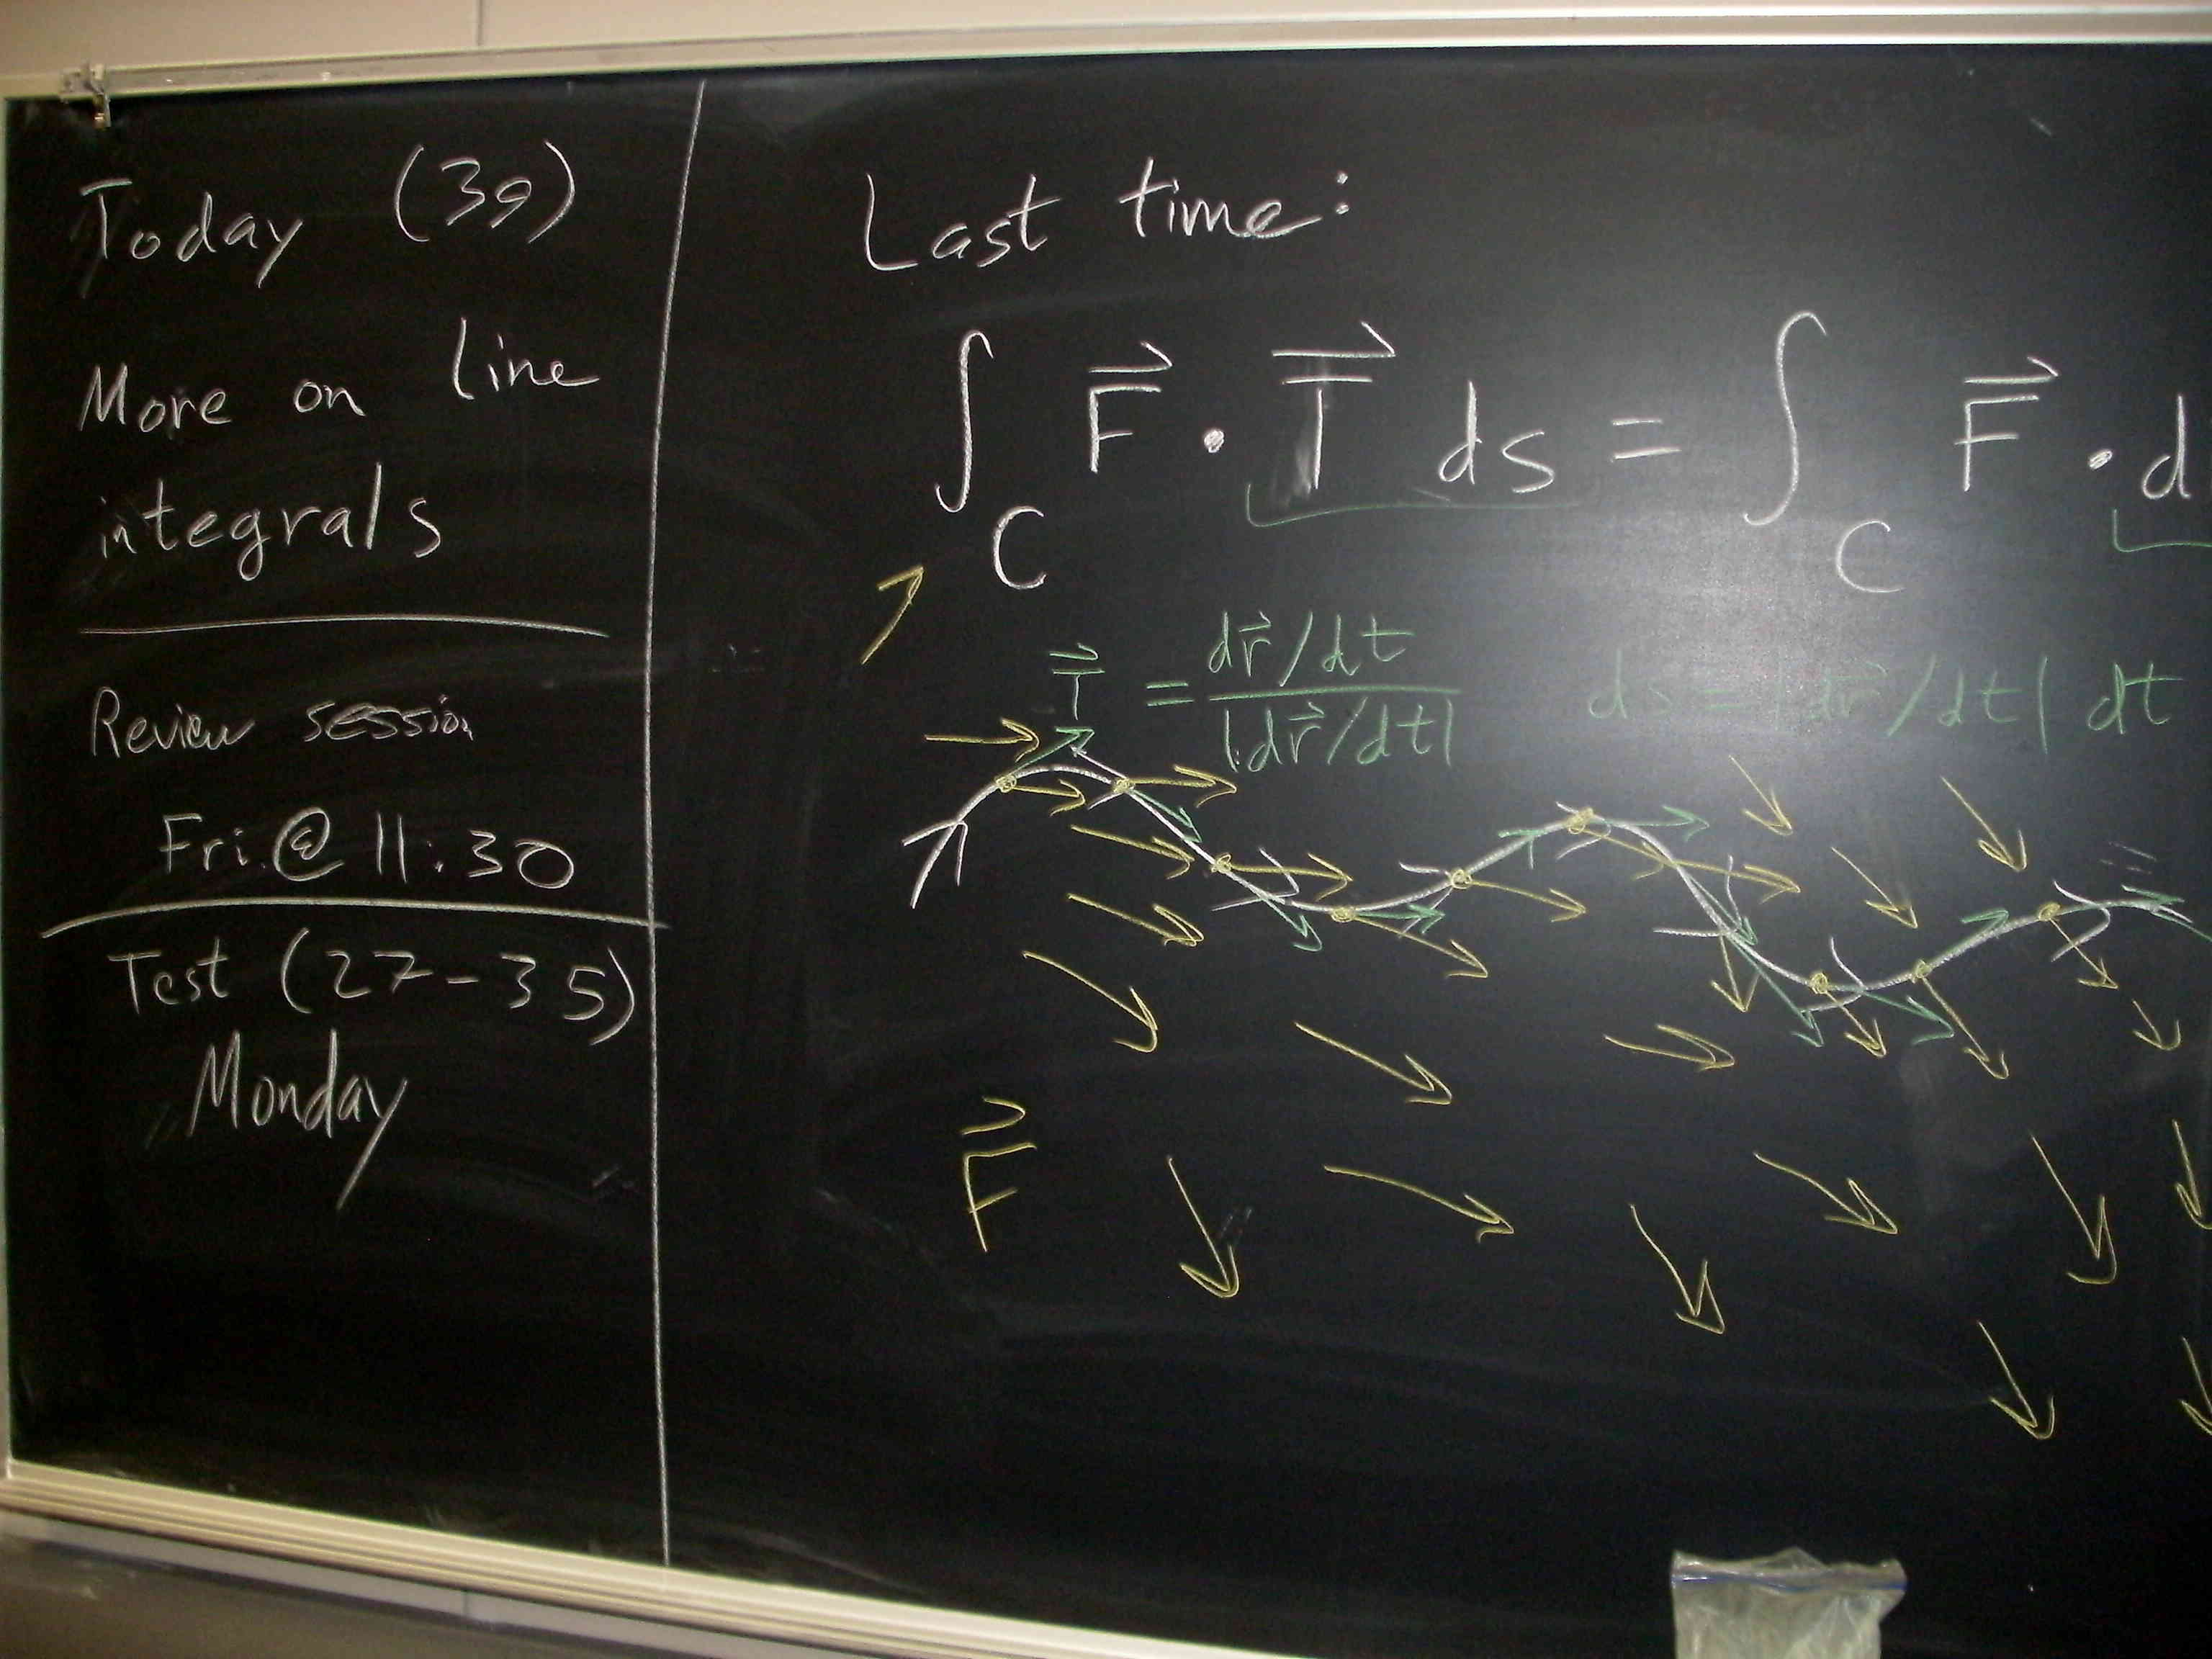 Today (39)
More on line
integrals
Review session
Fri. @ 11:30
Test (27-35)
Monday
Last time:
∫_C F⃗ · T⃗ ds = ∫_C F⃗ · d
T⃗ = (dr⃗/dt)/|dr⃗/dt| ds = |dr⃗/dt| dt
F⃗